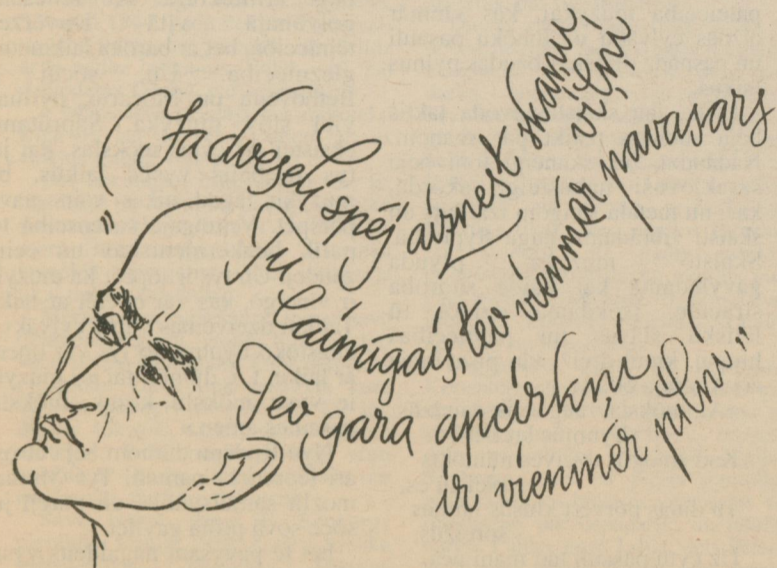 „Ja dvēseli spēj aiznest skaņu
viļņi
Tu laimīgais, tev vienmēr pavasars
Tev gara apcirkņi
ir vienmēr pilni”